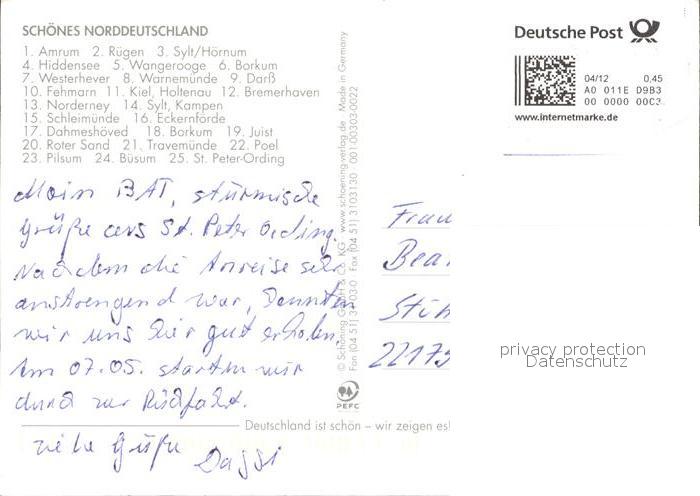 SCHÖNES NORDDEUTSCHLAND
1. Amrum 2. Rügen 3. Sylt/Hörnum
4. Hiddensee 5. Wangerooge 6. Borkum
7. Westerhever 8. Warnemünde 9. Darß
10. Fehmarn 11. Kiel, Holtenau 12. Bremerhaven
13. Norderney 14. Sylt, Kampen
15. Schleimünde 16. Eckernförde
17. Dahmeshöved 18. Borkum 19. Juist
20. Roter Sand 21. Travemünde 22. Poel
23. Pilsum 24. Büsum 25. St. Peter-Ording
Moin BAT, stürmische
Grüße aus St. Peter Ording.
Nachdem die Anreise sehr
anstrengend war, konnten
wir uns hier gut erholen.
Am 07.05. starten wir
durch zur Rückfahrt.
viele Grüße
© Schöning GmbH & Co. KG · www.schoening-verlag.de Made in Germany
Fax (04 51) 3103130 001-00303-0022
PEFC
Deutschland ist schön – wir zeigen es!
Deutsche Post
04/12 0,45
A0 011E D9B3
00 0000 00C3
www.internetmarke.de
Frau
Bea
22175
privacy protection
Datenschutz